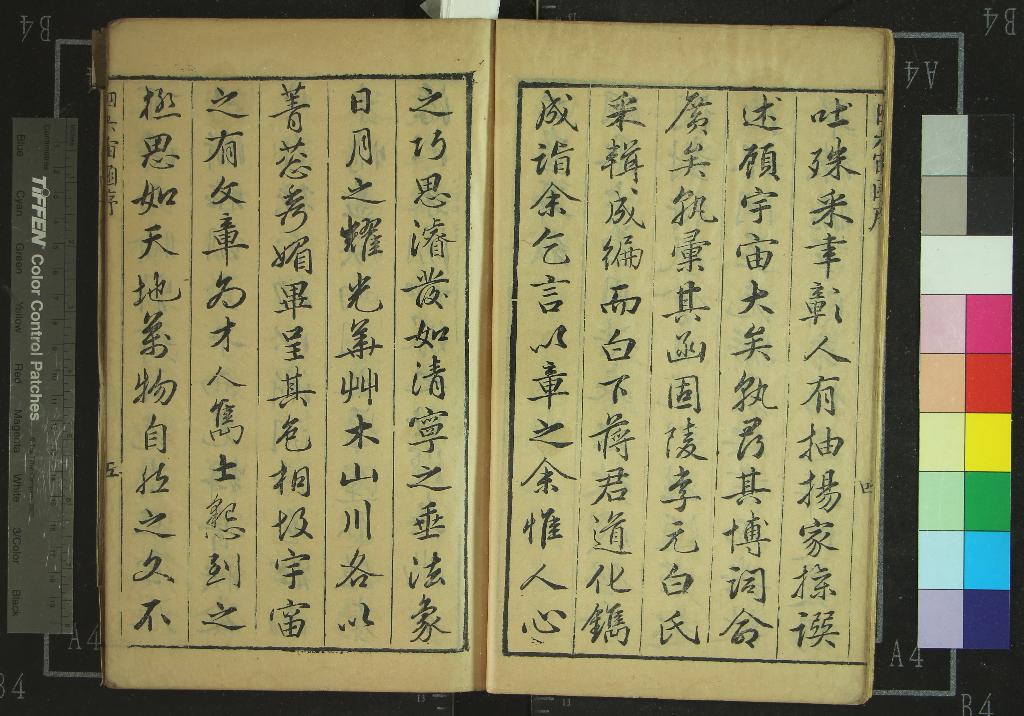 四六宙函序
四
吐殊采聿彰人有抽揚家操譔
述顧宇宙大矣孰尋其博詞命
廣矣孰彙其函固陵李元白氏
采輯成編而白下蔣君道化鐫
成詣余乞言以章之余惟人心
之巧思濬發如清寧之垂法象
日月之耀光華艸木山川各以
菁蔥秀媚畢呈其色相故宇宙
之有文章為才人雋士懇到之
極思如天地萬物自然之文不
五
TIFFEN Color Control Patches
Blue Cyan Green Yellow Red Magenta White 3/Color Black
B4
A4
B4
A4
B4
A4
B4
A4